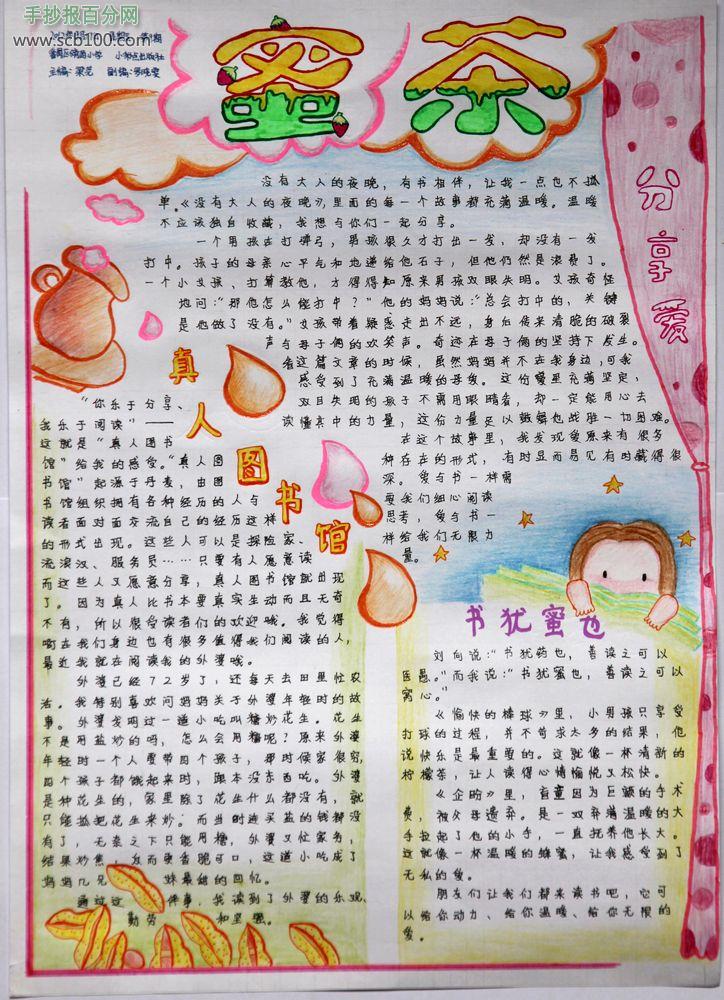 手抄报百分网
www.scb100.com
小学
主编：梁艺 副编：罗晓雯
蜜茶
分享爱
没有大人的夜晚，有书相伴，让我一点也不孤
单。《没有大人的夜晚》，里面的每一个故事都充满温暖。温暖
不应该独自收藏，我想与你们一起分享。
一个男孩在打弹弓，男孩很久才打出一发，却没有一发
打中。孩子的母亲心平气和地递给他石子，但他仍然是浪费了。
一个小女孩、打算教他，才得知原来男孩双眼失明。女孩奇怪
地问：“那他怎么能打中？”他的妈妈说：“总会打中的，关键
是他做了没有。”女孩带着疑惑走出不远，身后传来清脆的破裂
声与母子俩的欢笑声。奇迹在母子俩的坚持下发生。
看这篇文章的时候，虽然妈妈并不在我身边，可我
感受到了充满温暖的母爱。这份爱里充满坚定，
双目失明的孩子不需用眼睛看，却一定能用心去
读懂其中的力量，这份力量足以鼓舞他战胜一切困难。
在这个故事里，我发现爱原来有很多
种存在的形式，有时显而易见有时藏得很
深。爱与书一样需
要我们细心阅读
思考，爱与书一
样给我们无限力
量。
真人图书馆
“你乐于分享、
我乐于阅读”——
这就是“真人图书
馆”给我的感受。“真人图
书馆”起源于丹麦，由图
书馆组织拥有各种经历的人与
读者面对面交流自己的经历这样
的形式出现。这些人可以是探险家、
流浪汉、服务员……只要有人愿意读
而这些人又愿意分享，真人图书馆就出现
了。因为真人比书本要真实生动而且无奇
不有，所以很受读者们的欢迎哦。我觉得
在我们身边也有很多值得我们阅读的人，
最近我就在阅读我的外婆哦。
外婆已经72岁了，还每天去田里忙农
活。我特别喜欢问妈妈关于外婆年轻时的故
事。外婆发明过一道小吃叫糖炒花生。花生
不是用盐炒的吗，怎么会用糖呢？原来外婆
年轻时一个人要带四个孩子，那时候家很穷，
四个孩子都饿起来时，跟本没东西吃。外婆
是种花生的，家里除了花生什么都没有，就
只能抓把花生来炒。而当时连买盐的钱都没
有了，无奈之下只能用糖，外婆又忙家务，
结果炒焦 反而更香脆可口，这道小吃成了
妈妈几兄 妹最甜的回忆。
通过这 件事，我读到了外婆的乐观、
勤劳 和坚强。
书犹蜜也
刘向说：“书犹药也，善读之可以
医愚。”而我说：“书犹蜜也，善读之可以
窝心。”
《愉快的棒球》里，小男孩只享受
打球的过程，并不苛求太多的结果，他
说快乐是最重要的。这就像一杯清新的
柠檬茶，让人读得心情愉悦又松快。
《企盼》里，盲童因为巨额的手术
费，被父母遗弃。是一双弃满温暖的大
手拉起了他的小手，一直抚养他长大。
这就像一杯温暖的蜂蜜，让我感受到了
无私的爱。
朋友们让我们都来读书吧，它可
以给你动力、给你温暖、给你无限的
爱。